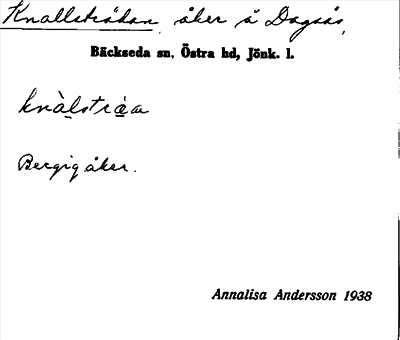 Knallstrådan, åker å Dagsås,
Bäckseda sn, Östra hd, Jönk. l.
knàlstráa
Bergig åker.
Annalisa Andersson 1938